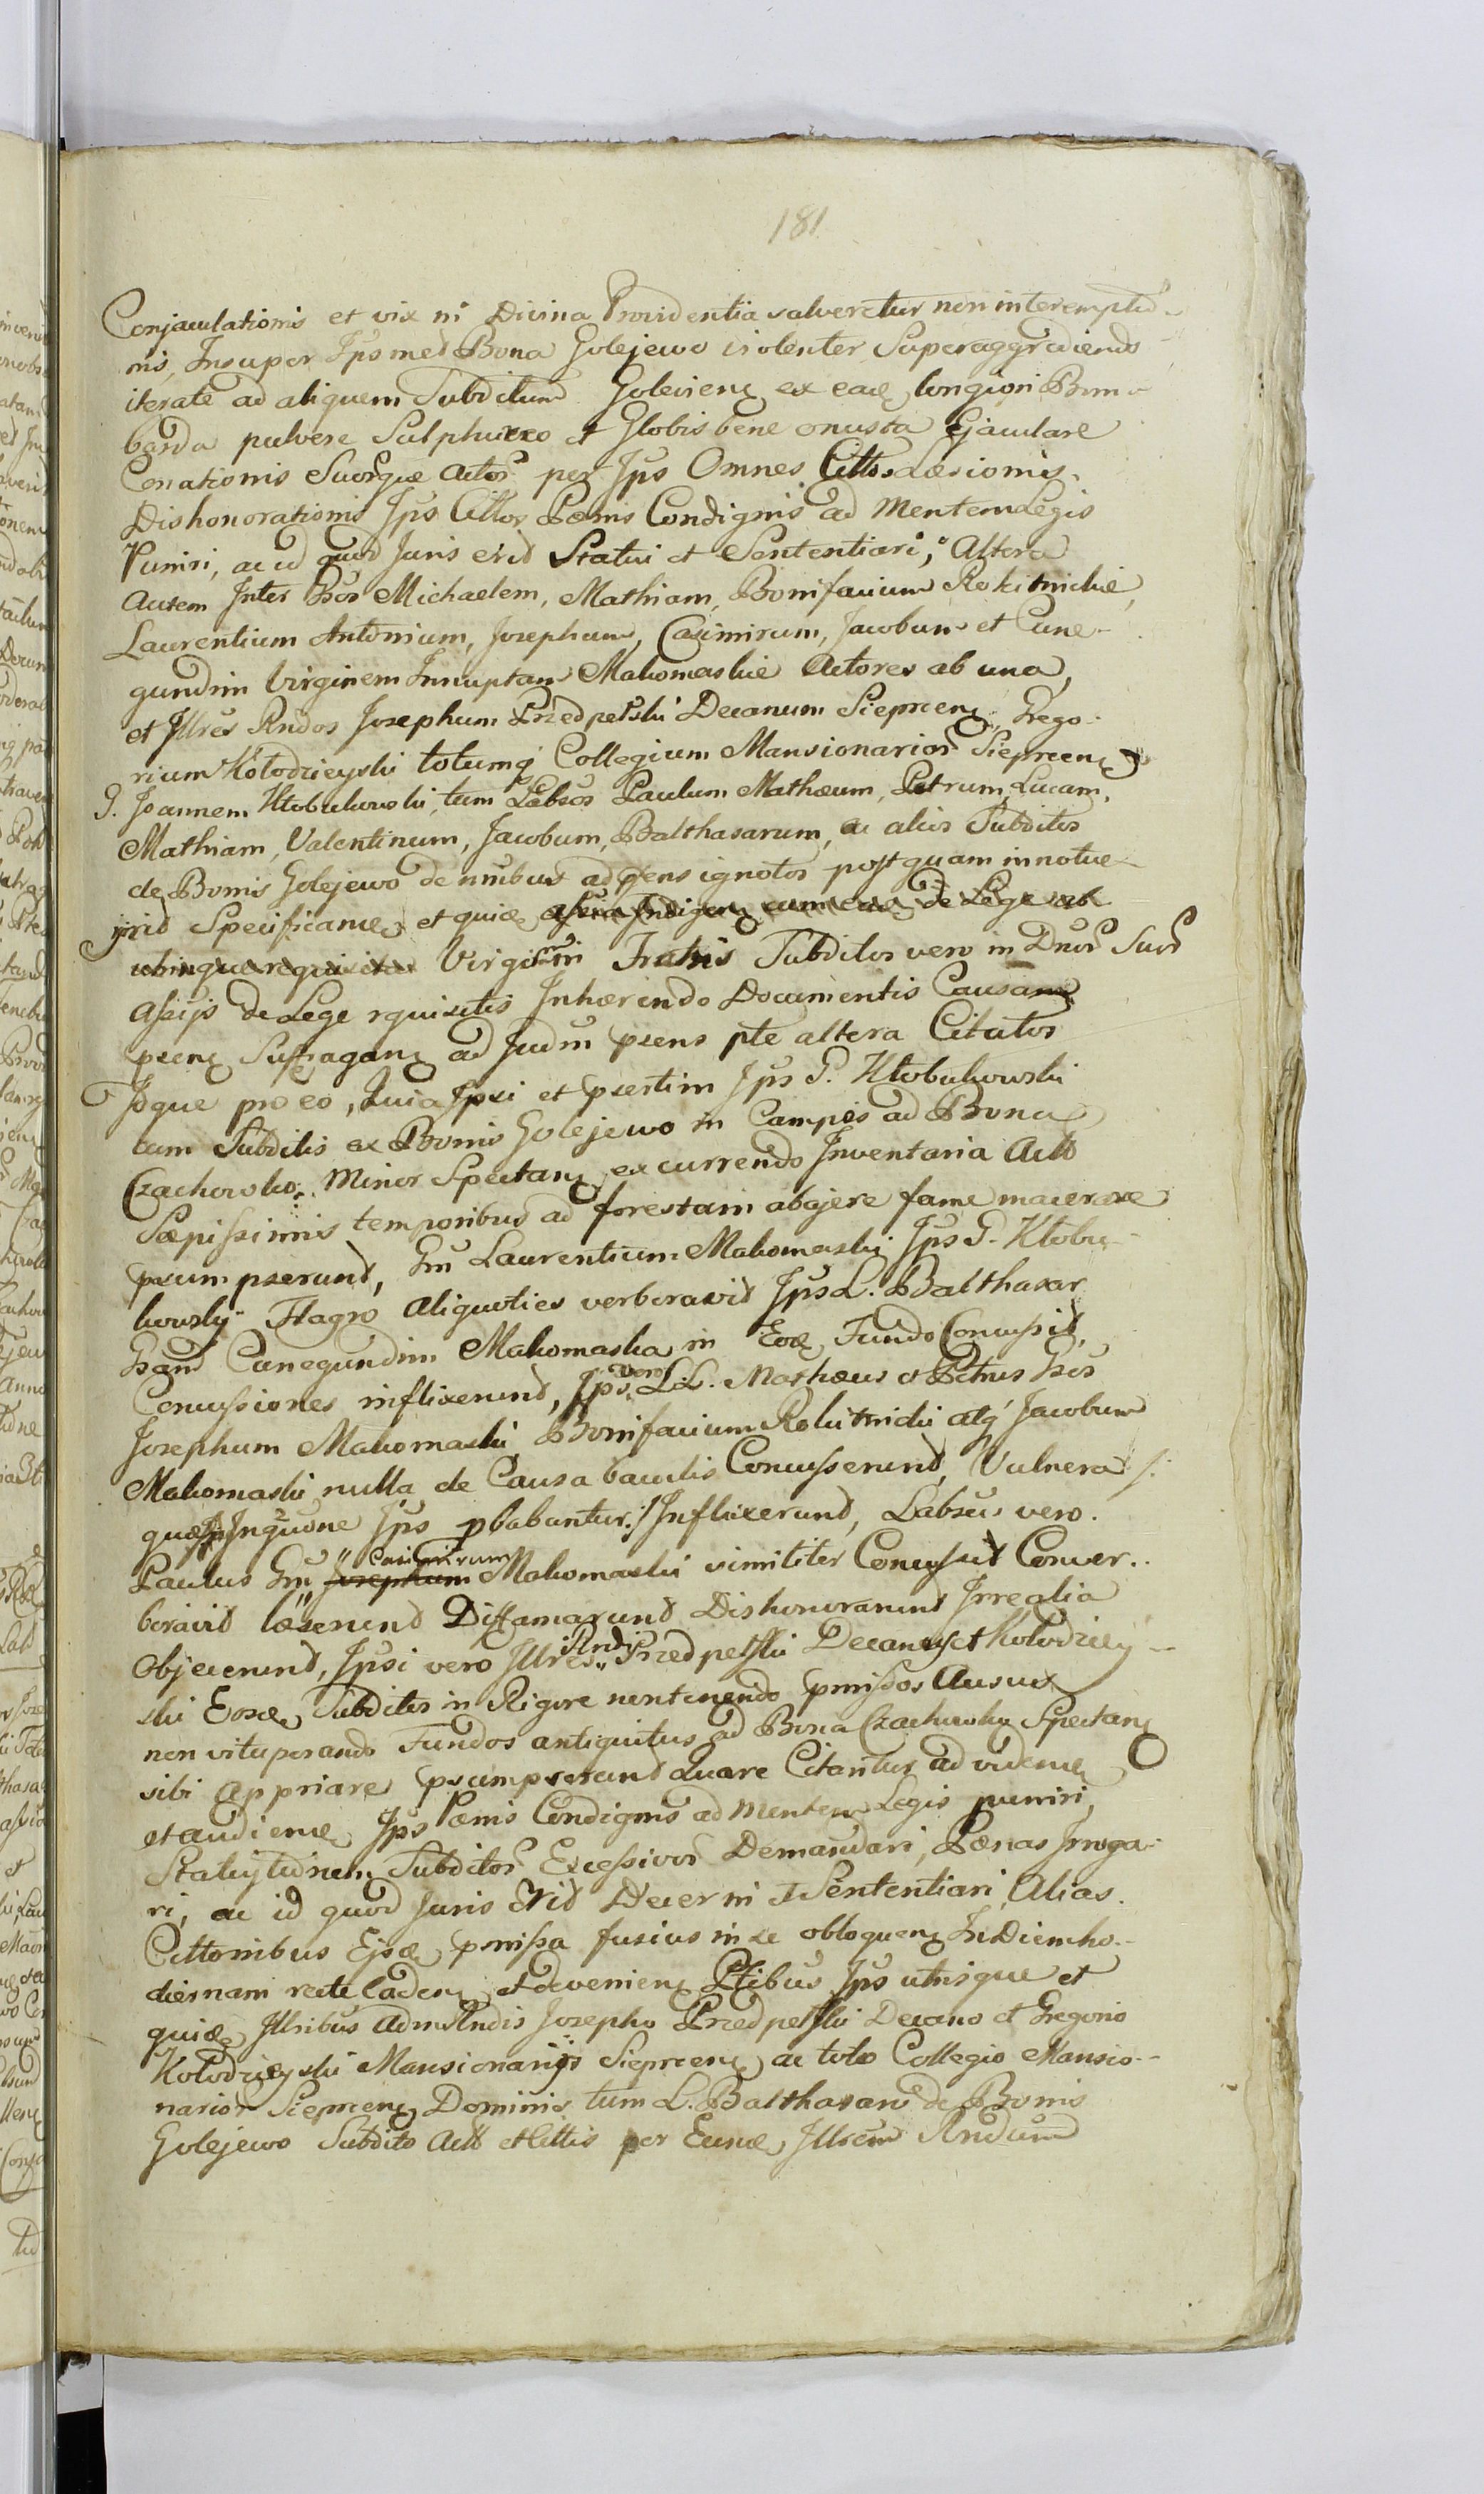 181
Conjaculationis et vix ni Divina Providentia salveretur non interemptio-
nis, Insuper Ips med Bona Golejewo violenter Superaggrediendo
iterate ad aliquem Subditum Golevien ex ead longiori Bom-
barda pulvere Sulphureo et Globis bene onusta Ejaculare
Conationis Suorque Actor per Ips Omnes Cittos Læsionis
Dishonorationis Ips Cittos Pænis Condignis ad Mentem Legis
Puniri, ac id quod Juris erit Statui et Sententiari, Altera
Autem Inter Gsos Michaelem, Mathiam, Bonifacium Rokitnickie,
Laurentium Antonium, Josephum, Casimirum, Jacobum et Cune-
gundim Virginem Innuptam Makomaskie Actores ab una,
et Illres Rndos Josephum Przedpełski Decanum Sieprcen, Grego-
rium Kołodzieyski totumq Collegium Mansionarior Sieprcen
G. Joannem Kłobukowski, tum Labsos Paulum Mathæum, Petrum, Lucam,
Mathiam, Valentinum, Jacobum, Balthasarum, ac alios Subditos
de Bonis Golejewo de nnibus ad psens ignotos postquam innotue-
rint Specificand et quid
Virginem Fratris Subditos vero in Dnor Suor
Assijs de Lege rquisitis Inhærendo Documentis Causam
psen Suffragan ad Judm psens pte altera Citatos
Idque pro eo, Quia Ipsi et psertim Ips G. Kłobukowski
cum Subditis ex Bonis Golejewo in Campos ad Bona
Czachowko Minor Spectan excurrendo Inventaria Actt
Sæpissimis temporibus ad forestam abgere fame macerare
psumpserunt, Gm Laurentium Makomaski Ips G. Kłobu-
kowsky Flagro aliquoties verberavit Ips L. Balthasar
Gsam Cunegundim Makomaska in Eod Fundo Concussit,
Concussiones inflixerunt, Ips vero LL. Mathæus et Petrus Gsos
Josephum Makomaski Bonifacium Rokitnicki atq Jacobum
Makomaski nulla de Causa baculis Concusserunt, Vulnera /:
quæ Inquone Ips pbabuntur :/ Inflixerunt, Labsus vero
Paulus Gm Josephum Casimirum Makomaski similiter Concussit Conver-
beravit læserunt Diffamarunt Dishonorarunt Irrealia
Objecerunt, Ipsi vero Illres Rndi Przedpełski Decanus et Kołodziey-
ski Eosd Subditos in Rigore non tenendo pmissos Ausus
non vituperando Fundos antiquitus ad Bona Czachowko Spectan
sibi appriare psumpserunt Quare Citantur ad vidend
et audiend Ips Pænis Condignis ad Mentem Legis puniri,
Subditor Excessivor Demandari, Pænas Irroga-
ri, ac id quod Juris Erit Decerni et Sententiari, Alias
Cittonibus Ejsd pmissa fusius in se obloquen In Diem ho-
diernam recte caden et devenien Ptibus Ips utrisque et
quid Illribus adm Rndis Josepho Przedpełski Decano et Gregorio
Kołodzieyski Mansionarijs Sieprcen ac toto Collegio Mansio-
narior Sieprcen Dominis tum L. Balthasaro de Bonis
Golejewo Subdito Actt et Cittis per Eund Illrem Rndum